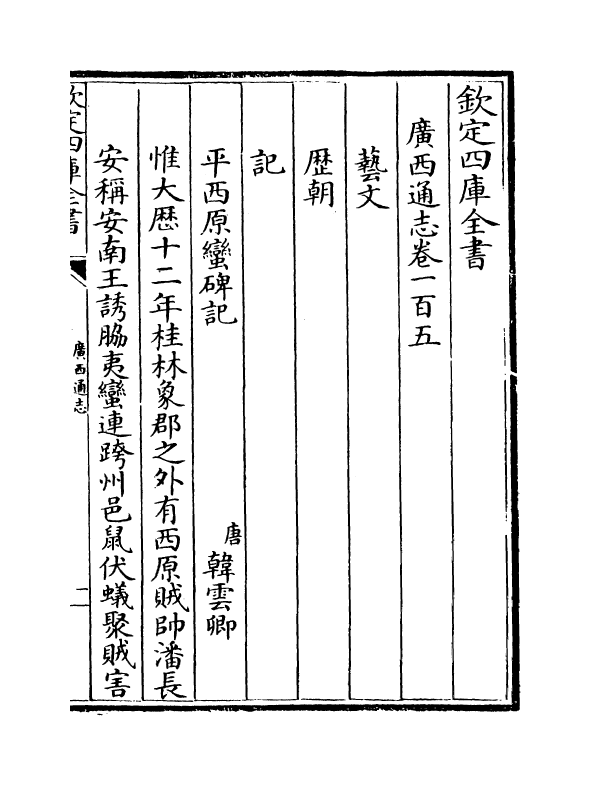 欽定四庫全書
廣西通志卷一百五
藝文
歴朝
記
平西原蠻碑記 唐 韓雲卿
惟大厯十二年桂林象郡之外有西原賊帥潘長
安稱安南王誘脇夷蠻連跨州邑鼠伏蟻聚賊害
欽定四庫全書
廣西通志
一